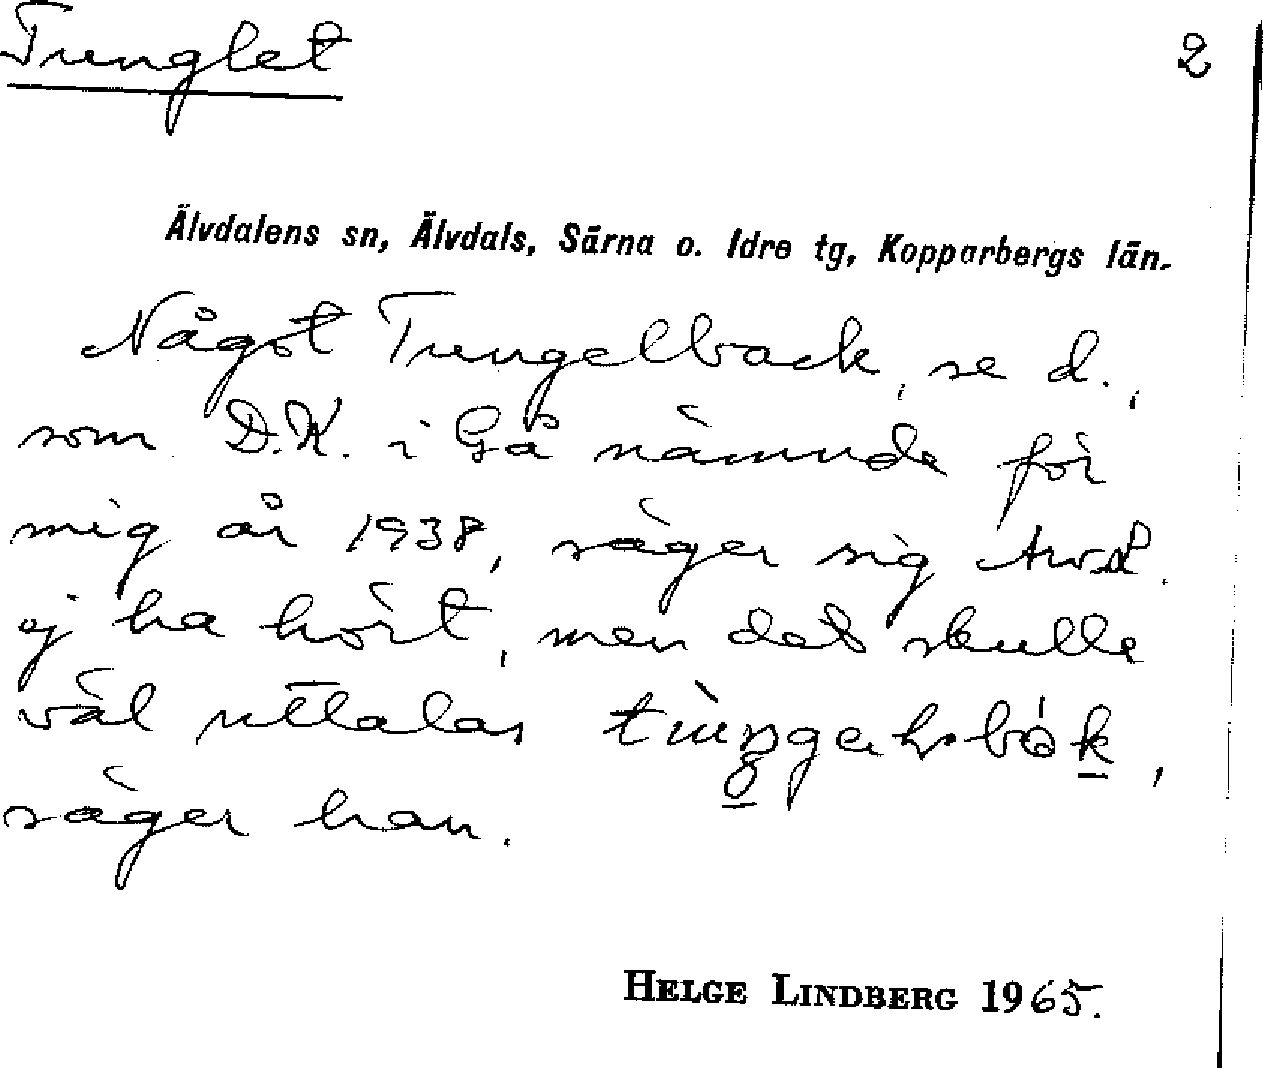 Trunglet
2
Älvdalens sn, Älvdals, Särna o. Idre tg, Kopparbergs län.
Något Trungelback, se d.,
som D.K. i Gå nämnde för
mig år 1938, säger sig
ej ha hört, men det skulle
väl uttalas
säger han.
HELGE LINDBERG 1965.